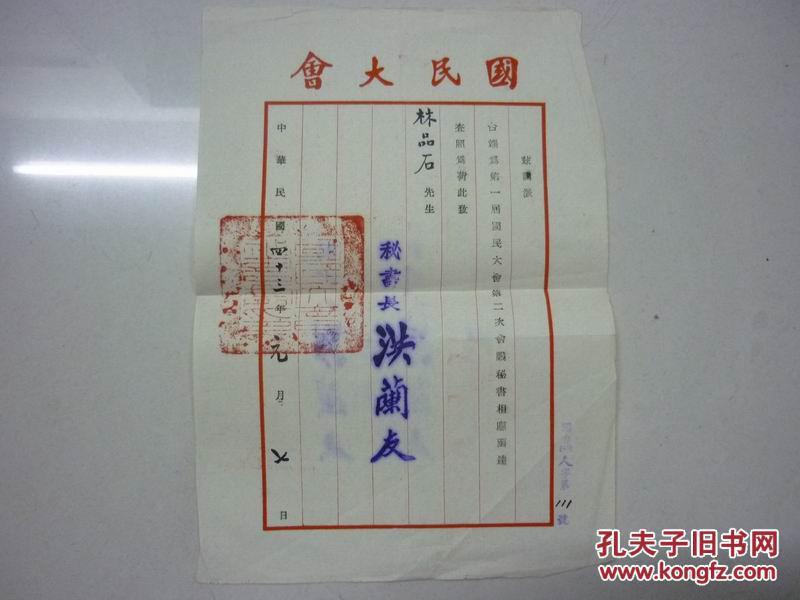 國民大會
茲謹派
台端爲第一屆國民大會第二次會議秘書相應函達
查照爲荷此致
林品石先生
秘書長洪蘭友
中華民國四十三年元月六日
人字第111號
孔夫子旧书网
www.kongfz.com